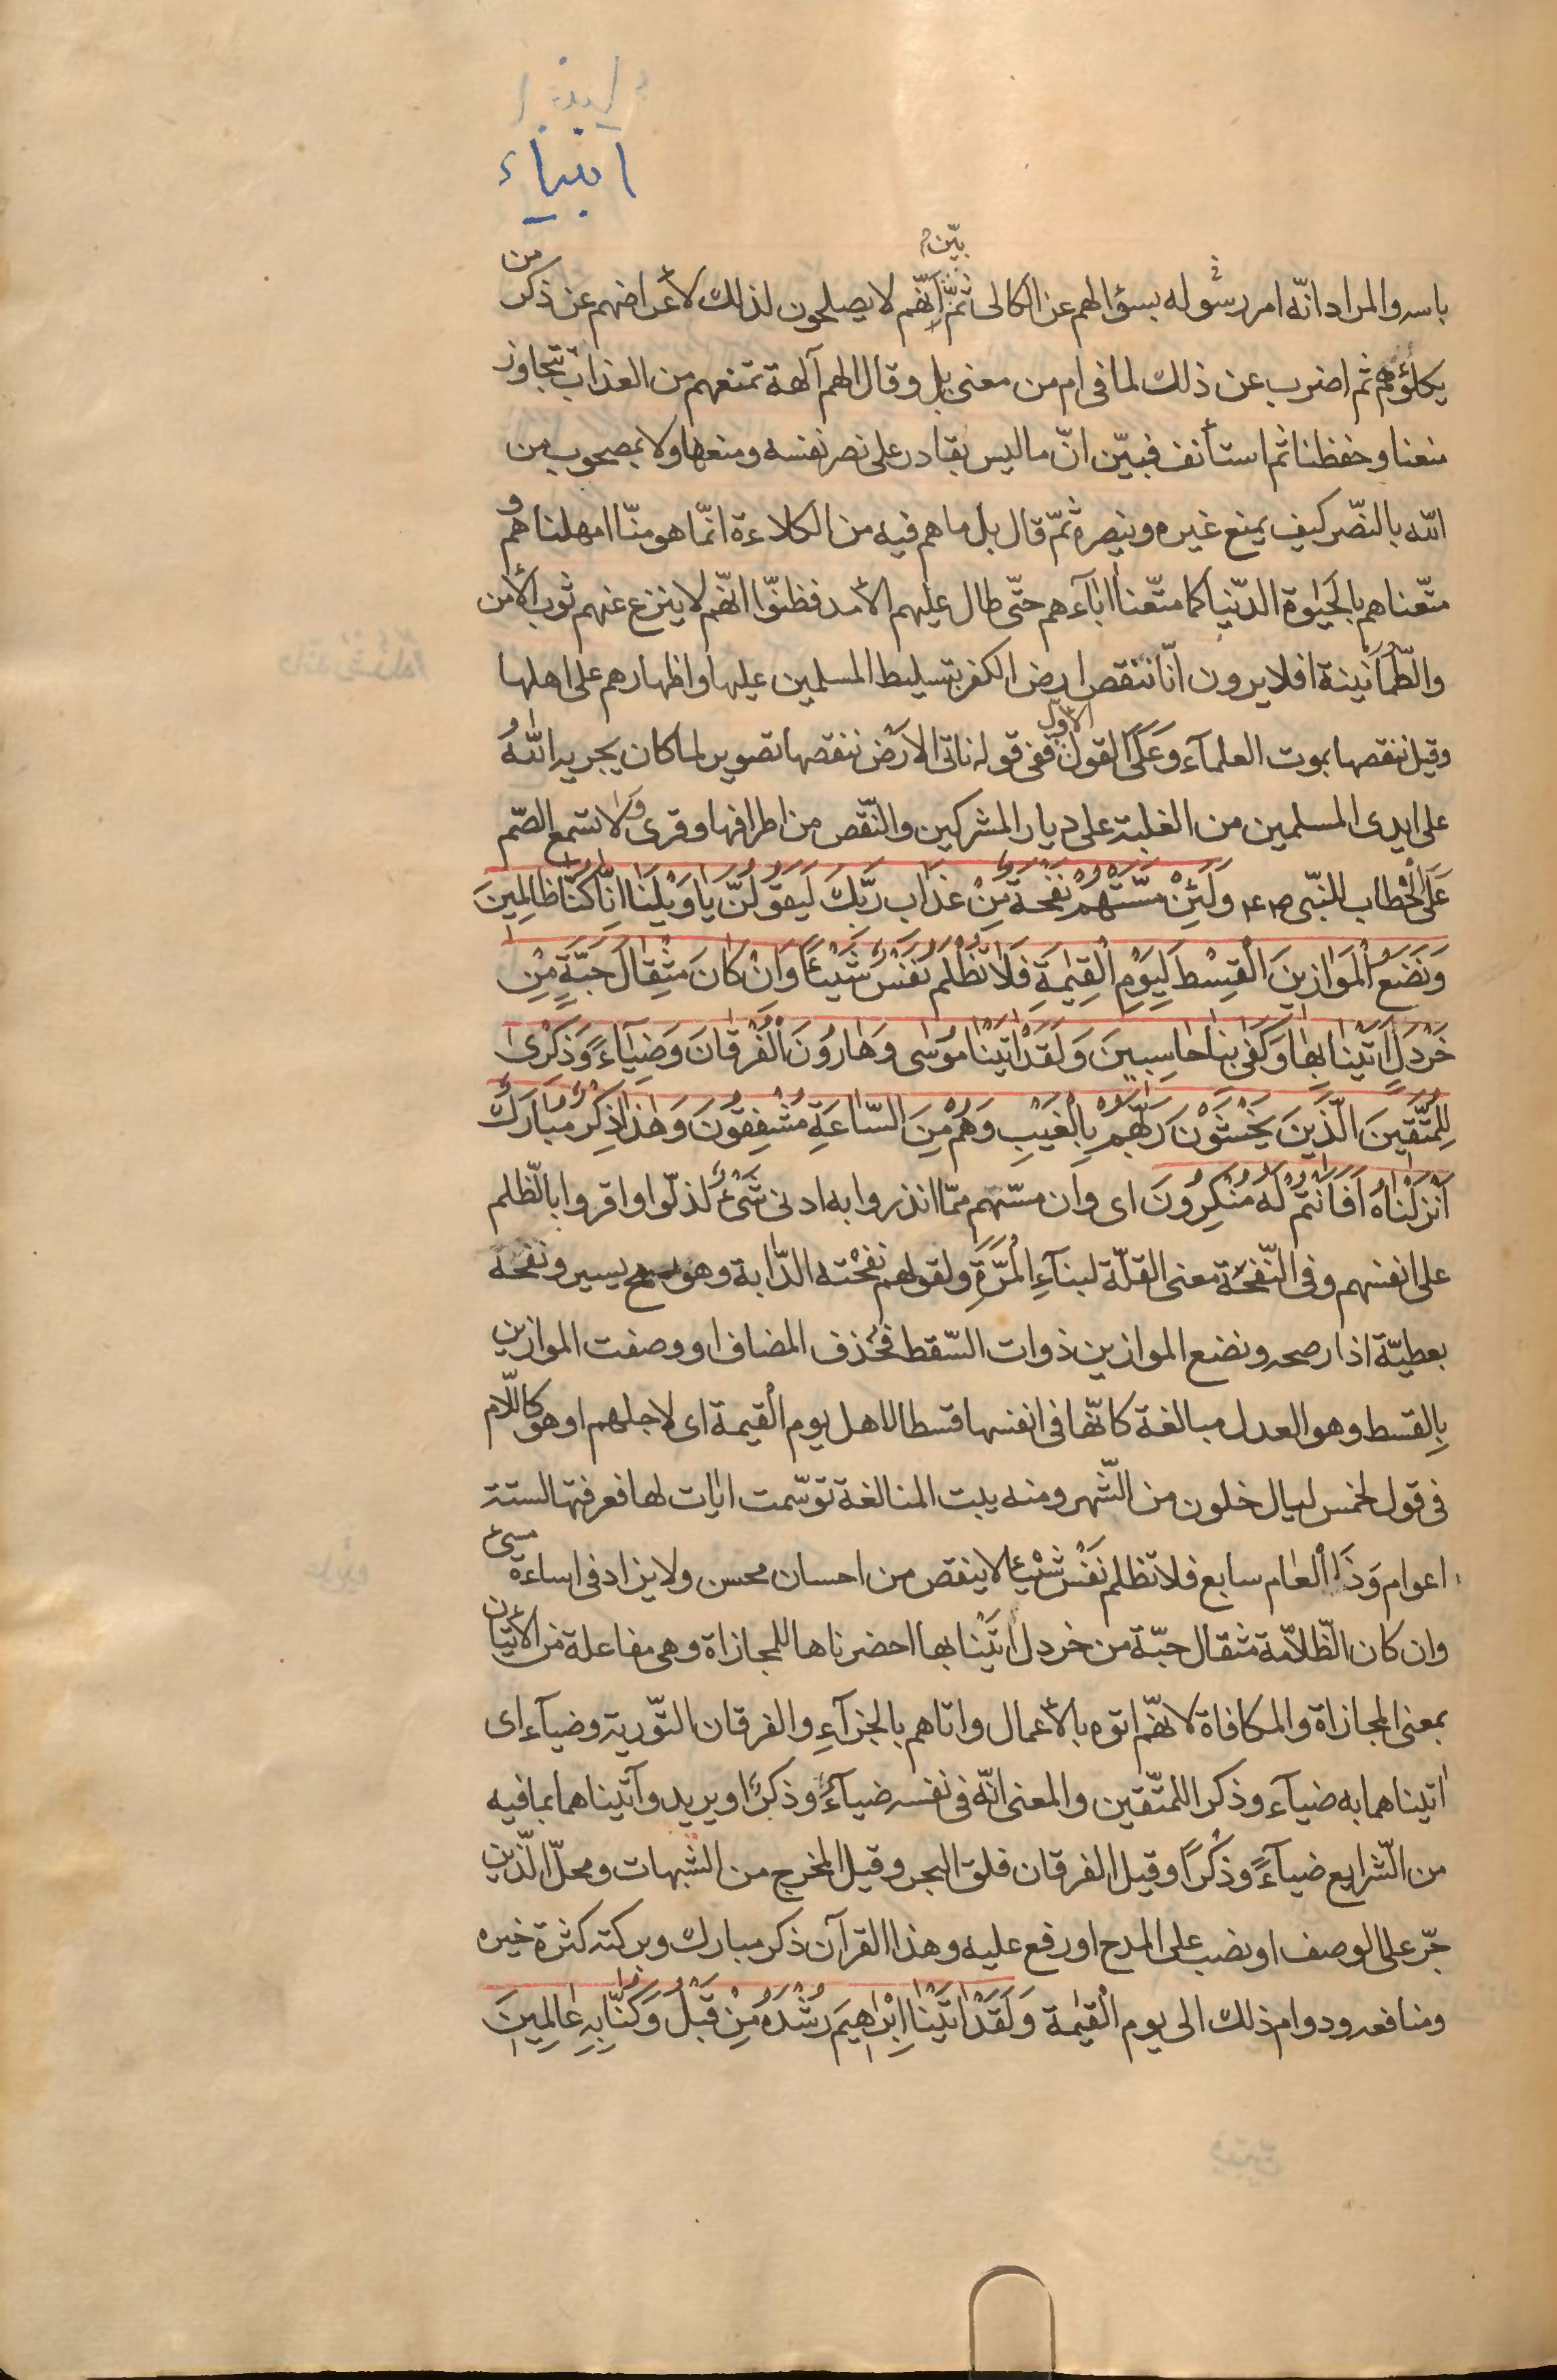 انبياء
بيّن
باسه والمراد انّه امر رسوله بسؤالهم عن الكالى ثمّ انّهم لا يصلحون لذلك لأعراضهم عن ذكر من
يكلؤهم ثم اضرب عن ذلك لما فى ام من معنى بل وقال الهم آلهة تمنعهم من العذاب تتجاوز
منعنا وحفظنا ثم استأنف فبيّن انّ ما ليس بقادر على نصر نفسه ومنعها ولا بمصحوب من
الله بالنّصر كيف يمنع غيره وينصره ثمّ قال بل ما هم فيه من الكلاءة انّما هو منّا امهلناهم و
متّعناهم بالحيٰوة الدّنيا كما متّعنا اباءهم حتّى طال عليهم الأمد فظنوّا انّهم لا ينزع عنهم ثوب الأمن
والطّمأنينة افلا يرون انّا ننقص ارض الكفر بتسليط المسلمين عليها واظهارهم على اهلها
وقيل ننقصها بموت العلمآء وَعَلَى القول الأول ففى قوله ناتى الارَض ننقصها تصوير لما كان يجريه اللهُ
على ايدى المسلمين من الغلبة على ديار المشركين والنّقص من اطرافها وقرى وَلا تسمع الصّم
عَلَى الْخطاب للنّبى ص ع وَلَئِنْ مَسَّتْهُمْ نَفْحَةٌ مِنْ عَذابِ رَبِّكَ لَيَقوُلُنَّ يٰا وَيْلَنٰا اِنّٰا كُنّٰا ظالِمينَ
وَنَضَعُ الْمَوٰازينَ الْقِسْطَ لِيَوْمِ الْقِيٰمَةِ فَلاٰ تُظْلَمُ نَفْسٌ شَيْئًا وَاِنْ كٰانَ مِثْقٰالَ حَبَّةٍ مِنْ
خَرْدَلٍ اَتَيْنٰا بِهٰا وَكَفٰى بِنٰا حٰاسِبينَ وَلَقَدْ اٰتَيْنٰا موُسٰى وَهٰاروُنَ الْفُرْقٰانَ وَضِيٰاءً وَذِكْرىٰ
لِلْمُتَّقينَ الَّذينَ يَخْشَوْنَ رَبَّهُمْ بِالْغَيْبِ وَهُمْ مِنَ السّٰاعَةِ مُشْفِقوُنَ وَهٰذا ذِكْرٌ مُبٰارَكٌ
اَنْزَلْنٰاهُ اَفَاَنْتُمْ لَهُ مُنْكِروُنَ اى وان مسّتهم ممّا انذروا به ادنى شَىْءٌ لذلّوا واقروا بالّظلم
على انفسهم وفى النّفحَة معنى القلّة لبنآءِ الْمَرَّةِ ولقولهم نفحْته الدّابة وهو رمح يسير ونفحَة
بعطيّة اذا رصحه ونضع الموازين ذوات السّقط فحُذف المضاف او وصفت الموازين
بِالقسط وهو العدل مبالغة كانّها فى انفسها قسط الاهل يوم الْقيمة اى لاجلهم او هو كاللّام
فى قول لخمس ليال خلون من الشّهر ومنه يبت المنالغة توسّمت ايٰات لها فعرفتها لستة
اعوام وَذَا الْعٰام سابع فلا تظلم نَفْسٌ شَيْئًا لا ينقص من احسان محسن ولا يزاد فى اساءة مسىء
وان كان الظّلامّة مثقال حبّة من خردل اٰتَيْنا بها احضرناها للمجازاة وهى مفاعلة من الأتيان
بمعنى المجازاة والمكافاة لانهّم اتوه بالأعمال واتاهم بالجزآءِ والفرقان التّورية وضيآء اى
اٰتيناهما به ضيآء وذكر اللمتّقين والمعنى انّه فى نفسه ضيآءٌ وذكرٌ او يريد وآتيناهما بما فيه
من الّشرايع ضيآءً وذكْرًا وقيل الفرقان فلق البحر وقيل المخرج من الشبهات ومحلّ الّذين
جرّ على الوصف او نصب على المدح او رفع عليه وهذا القرآن ذكر مبارك وبركته كثرة خيره
ومنافعه ودوام ذلك الى يوم الْقيٰمة وَلَقَدْ اٰتَيْنٰا اِبْرٰاهيمَ رُشْدَهُ مِنْ قَبْلُ وَكُنّٰا بِهِ عٰالِمينَ